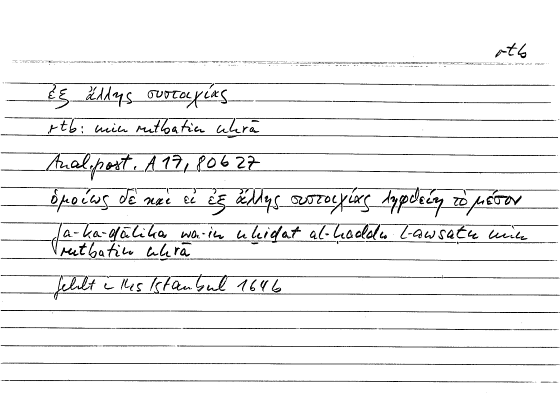 rtb
ἐξ ἄλλης συστοιχίας
rtb: min rutbatin uḫrā
Anal. post. A 17, 80b27
ὁμοίως δὲ καὶ εἰ ἐξ ἄλλης συστοιχίας ληφθείη τὸ μέσον
fa-ka-ḏālika wa-in uḫiḏat al-ḥaddu l-awsaṭu min
rutbatin uḫrā
fehlt i Hs Istanbul 1646